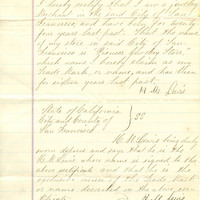 I hereby certify that I am a
Merchant in the said City of San
Francisco and have been for twenty
four years last past. That the name
of my store in said City of San
Francisco is "Pioneer
which name I hereby claim as my
Trade Mark or name, and has been
for sixteen years last past.
H. M. Lewis
State of California
City and County of
San Francisco
SS
H. M. Lewis being duly
sworn deposes and says that he is the
H. M. Lewis whose name is signed to the
above certificate and that he is the
owner of the Trade Mark
or name described in the above
H. M. Lewis